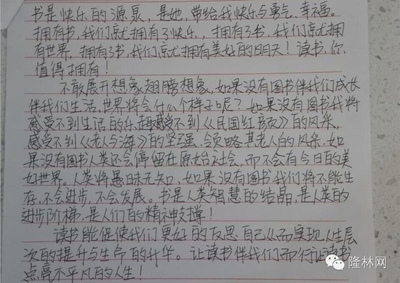 书是快乐的源泉,是她,带给我快乐与勇气、幸福。
拥有书,我们就拥有了快乐,拥有了书,我们就拥
有世界,拥有了书,我们就拥有美好的明天!读书,你
值得拥有!
不敢展开想象翅膀想象,如果没有图书伴我们成长
伴我们生活,世界将会什么个样子呢?如果没有图书我将
感受不到生活的乐趣,感受不到《民国红颜》的风采,
感受不到《老人与海》的坚强、领略其老人的风采,如
果没有图书人类还会停留在原始社会,而不会有今日的美
好世界。人类将愚昧无知,如果没有图书我们将不能生
存,不会进步,不会发展。书是人类智慧的结晶,是人类的
进步阶梯,是人们的精神支撑!
读书能促使我们更好的反思自己从而实现人生层
次的提升与生命的升华。让读书伴我们而行让读书
点亮不平凡的人生!
隆林网